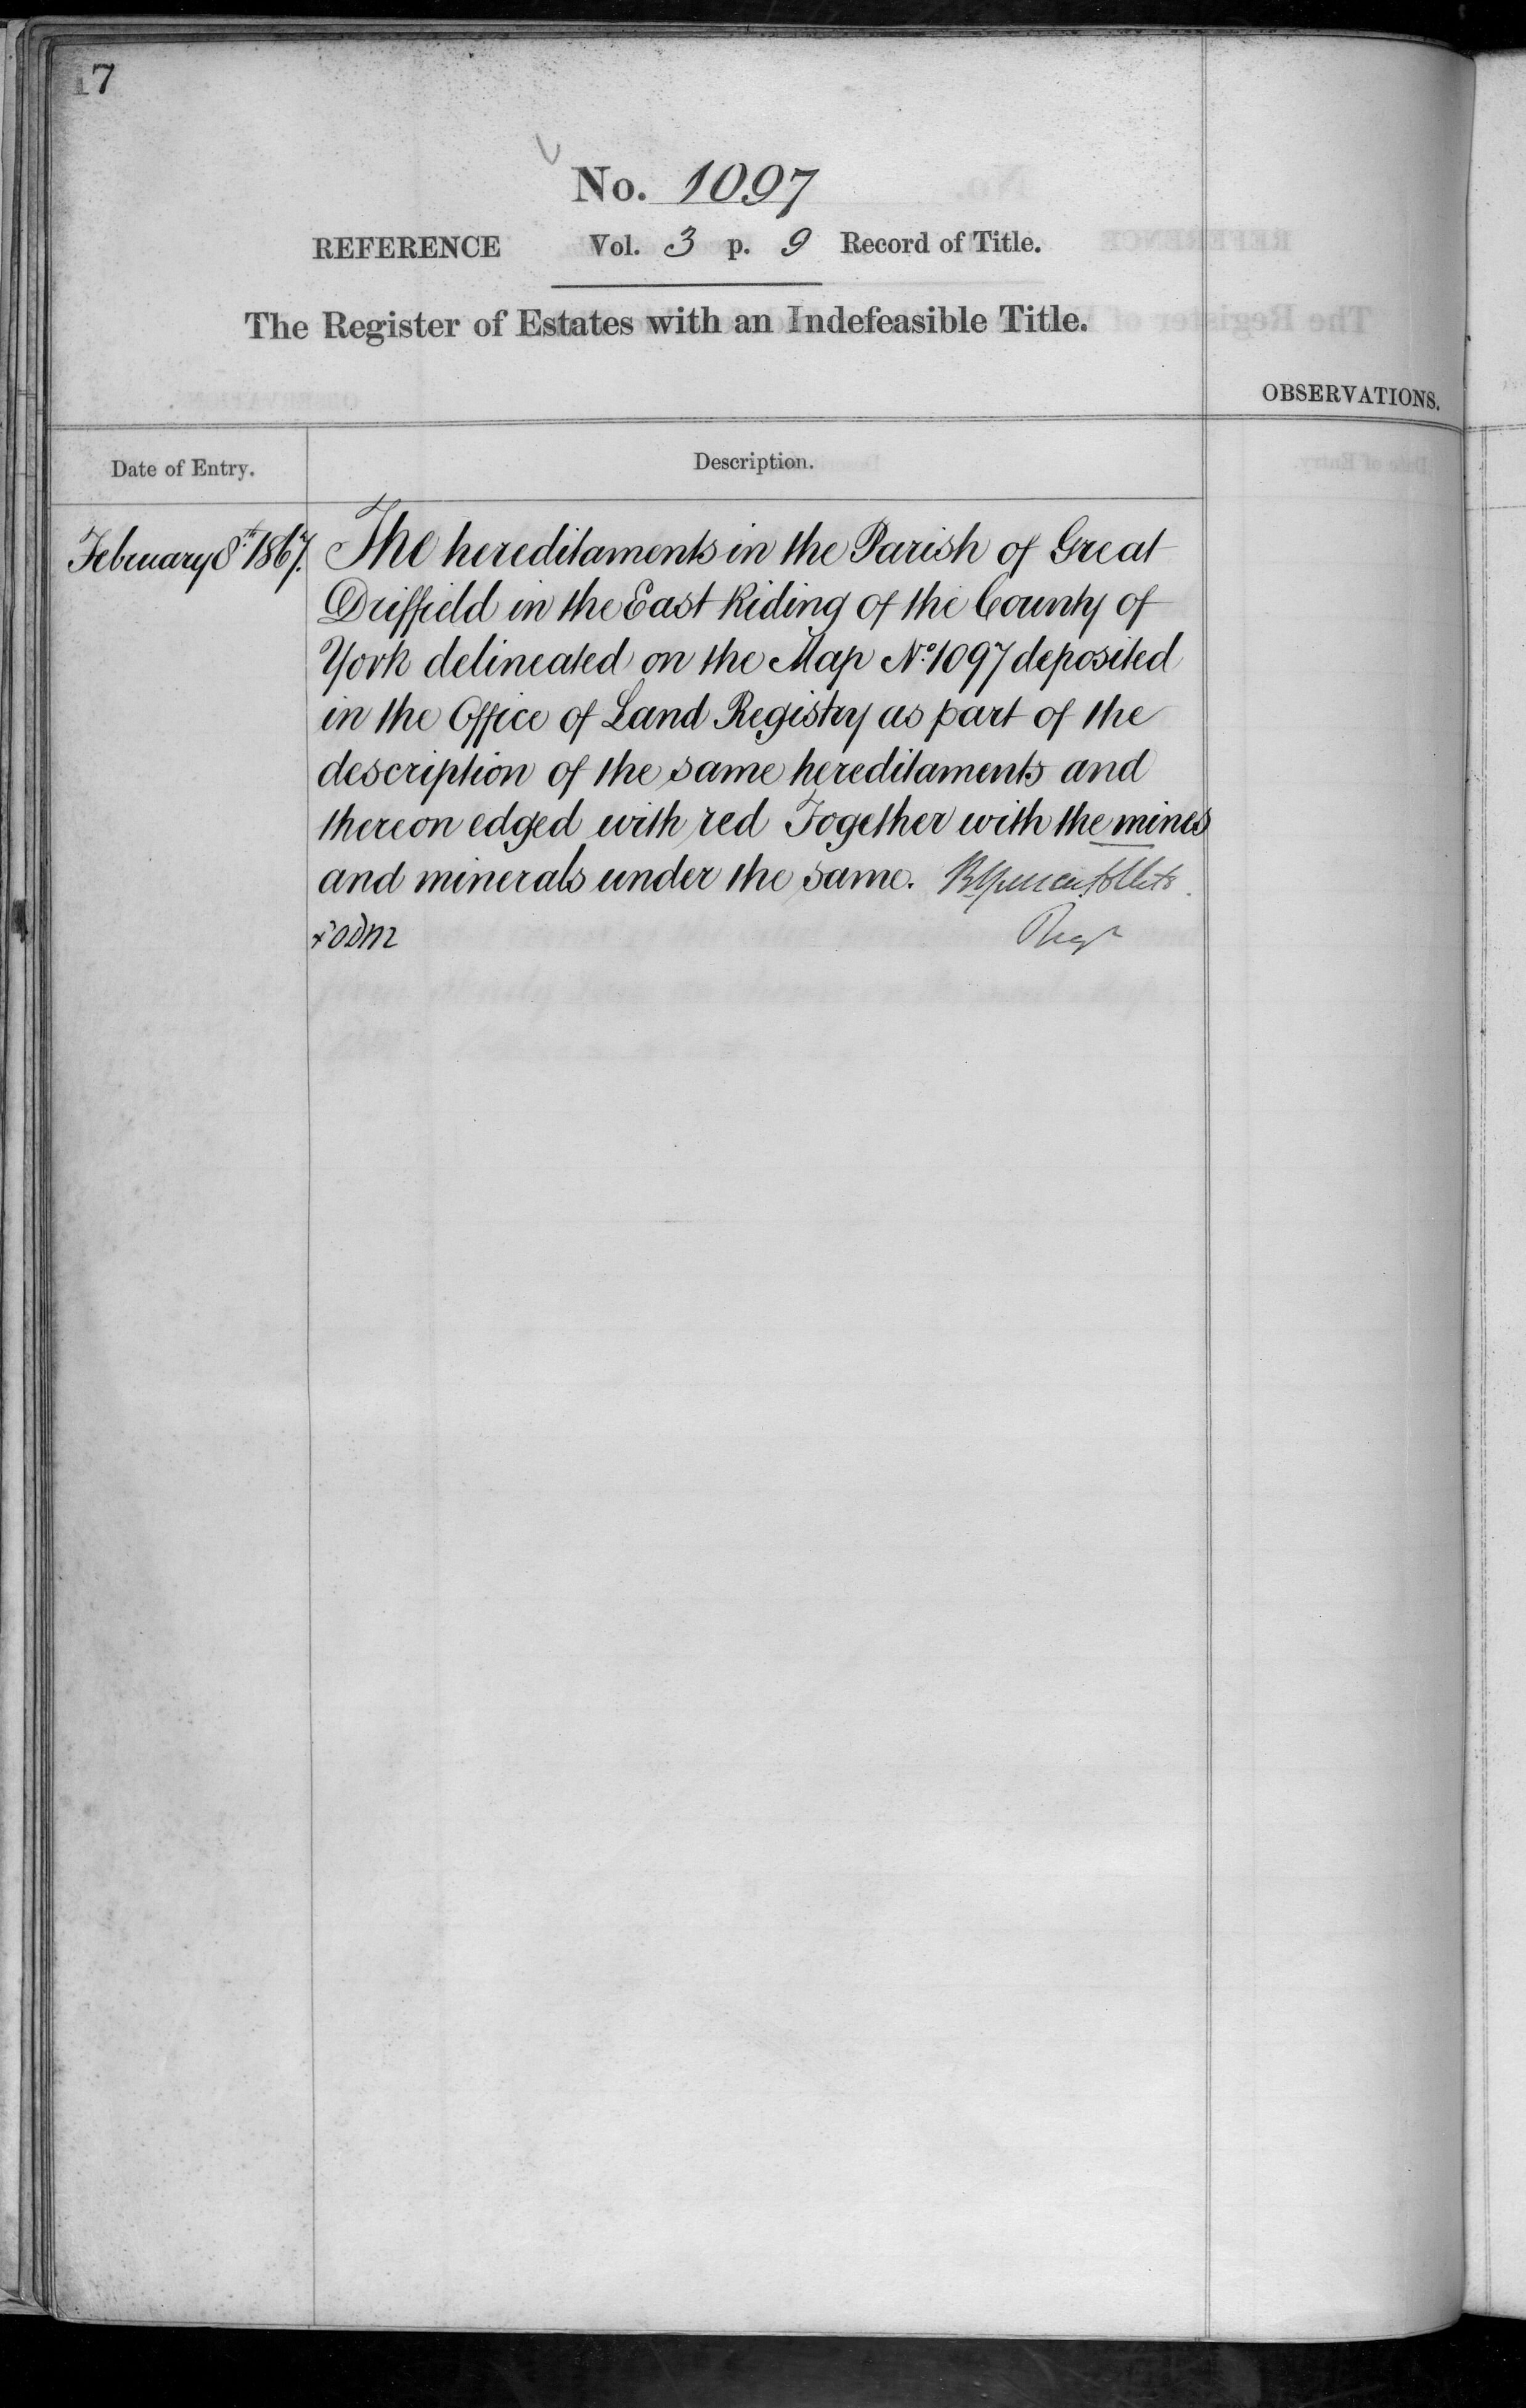 17
No. 1097
REFERENCE Vol. 3 p. 9 Record of Title.
The Register of Estates with an Indefeasible Title.
OBSERVATIONS.
Date of Entry. Description.
February 8th 1867. The hereditaments in the Parish of Great
Driffield in the East Riding of the County of
York delineated on the Map No. 1097 deposited
in the Office of Land Registry as part of the
description of the same hereditaments and
thereon edged with red Together with the mines
and minerals under the same.
Regr